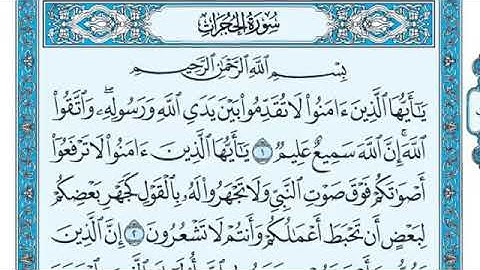 سُورَةُ الحُجُرَاتِ
بِسْمِ اللَّهِ الرَّحْمَٰنِ الرَّحِيمِ
يَٰٓأَيُّهَا الَّذِينَ ءَامَنُوا لَا تُقَدِّمُوا بَيْنَ يَدَيِ اللَّهِ وَرَسُولِهِۦ ۖ وَاتَّقُوا
اللَّهَ ۚ إِنَّ اللَّهَ سَمِيعٌ عَلِيمٌ ١ يَٰٓأَيُّهَا الَّذِينَ ءَامَنُوا لَا تَرْفَعُوٓا
أَصْوَٰتَكُمْ فَوْقَ صَوْتِ النَّبِيِّ وَلَا تَجْهَرُوا لَهُۥ بِالْقَوْلِ كَجَهْرِ بَعْضِكُمْ
لِبَعْضٍ أَن تَحْبَطَ أَعْمَٰلُكُمْ وَأَنتُمْ لَا تَشْعُرُونَ ٢ إِنَّ الَّذِينَ